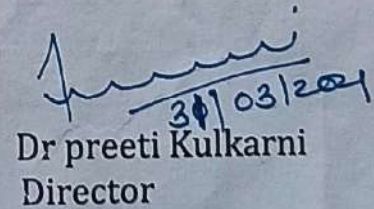 31/03/2021
Dr preeti Kulkarni
Director